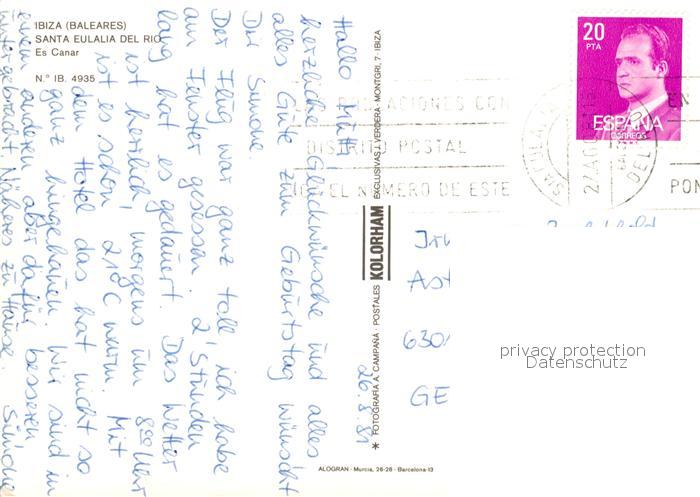 IBIZA (BALEARES)
SANTA EULALIA DEL RIO
Es Canar
N.° IB. 4935
Hallo Mutti
herzliche Glückwünsche und alles
alles Gute zum Geburtstag wünscht
Dir Simone.
Der Flug war ganz toll, ich habe
am Fenster gesessen. 2 Stunden
lang hat es gedauert. Das Wetter
ist herrlich, morgens um 8⁰⁰ Uhr
ist es schon 21°C warm. Mit
dem Hotel das hat nicht so
ganz hingehauen. Wir sind in
einem anderen, aber dafür besseren
untergebracht. Näheres zu Hause.
Simone
26.8.81
* FOTOGRAFIA A. CAMPAÑA · POSTALES KOLORHAM EXCLUSIVAS J. VERDERA · MONTGRI, 7 · IBIZA
ALOGRAN - Murcia, 26-28 - Barcelona-13
20
PTA
ESPAÑA
CORREOS
DISTRITO POSTAL
EL NUMERO DE ESTE
EN
PON
630
GE
privacy protection
Datenschutz